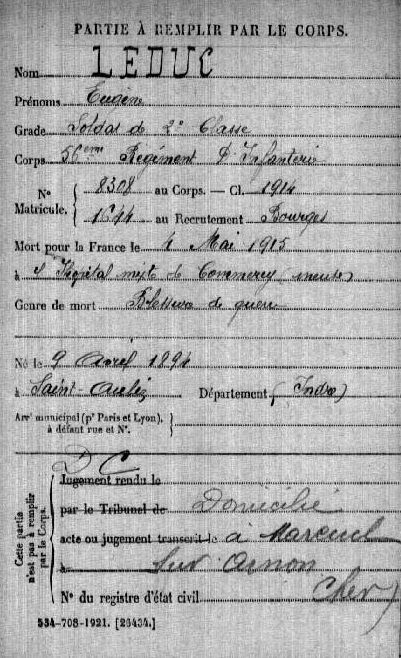 PARTIE À REMPLIR PAR LE CORPS.
Nom LEDUC
Prénoms Eugène
Grade Soldat de 2e Classe
Corps 56eme Régiment d'Infanterie
N° Matricule. { 8308 au Corps. — Cl. 1914
1644 au Recrutement Bourges
Mort pour la France le 4 Mai 1915
à l'Hôpital mixte de Commercy (meuse)
Genre de mort Blessure de guerre
Né le 9 Avril 1894
à Saint-Aubin Département (Indre)
Arrt municipal (pr Paris et Lyon), }
à défaut rue et N°.
Cette partie n'est pas à remplir par le Corps.
DC
Jugement rendu le
par le Tribunal de Domicilié
acte ou jugement transcrit le à Mareuil
à sur Arnon
N° du registre d'état civil Cher)
534-708-1921. [26434.]